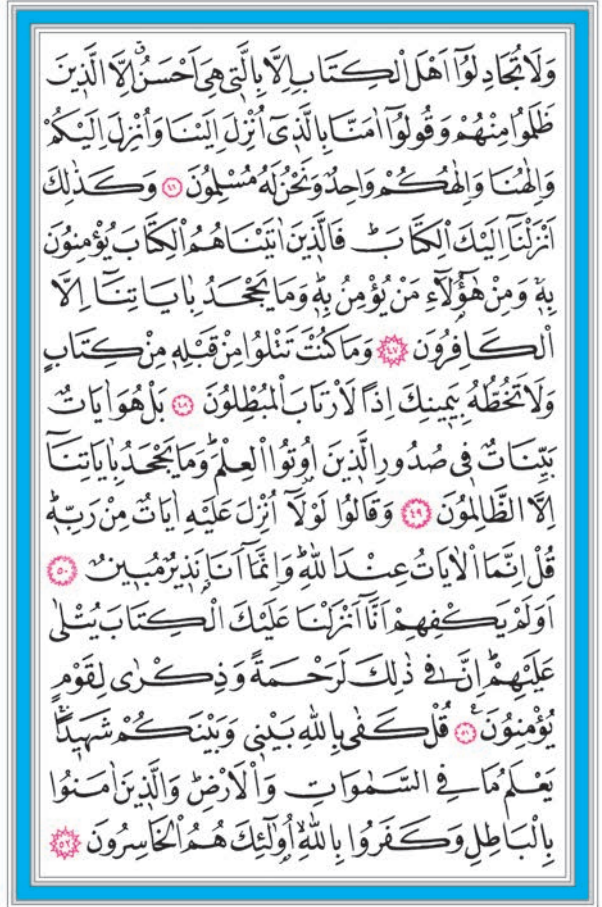 وَلَا تُجَادِلُٓوا اَهْلَ الْكِتَابِ اِلَّا بِالَّتٖي هِيَ اَحْسَنُۗ اِلَّا الَّذٖينَ
ظَلَمُوا مِنْهُمْ وَقُولُٓوا اٰمَنَّا بِالَّذٖٓي اُنْزِلَ اِلَيْنَا وَاُنْزِلَ اِلَيْكُمْ
وَاِلٰهُنَا وَاِلٰهُكُمْ وَاحِدٌ وَنَحْنُ لَهُ مُسْلِمُونَ ﴿٤٦﴾ وَكَذٰلِكَ
اَنْزَلْنَٓا اِلَيْكَ الْكِتَابَۜ فَالَّذٖينَ اٰتَيْنَاهُمُ الْكِتَابَ يُؤْمِنُونَ
بِهٖۚ وَمِنْ هٰٓؤُ۬لَٓاءِ مَنْ يُؤْمِنُ بِهٖۜ وَمَا يَجْحَدُ بِاٰيَاتِنَٓا اِلَّا
الْكَافِرُونَ ﴿٤٧﴾ وَمَا كُنْتَ تَتْلُوا مِنْ قَبْلِهٖ مِنْ كِتَابٍ
وَلَا تَخُطُّهُ بِيَمٖينِكَ اِذًا لَارْتَابَ الْمُبْطِلُونَ ﴿٤٨﴾ بَلْ هُوَ اٰيَاتٌ
بَيِّنَاتٌ فٖي صُدُورِ الَّذٖينَ اُو۫تُوا الْعِلْمَۜ وَمَا يَجْحَدُ بِاٰيَاتِنَٓا
اِلَّا الظَّالِمُونَ ﴿٤٩﴾ وَقَالُوا لَوْلَٓا اُنْزِلَ عَلَيْهِ اٰيَاتٌ مِنْ رَبِّهٖۜ
قُلْ اِنَّمَا الْاٰيَاتُ عِنْدَ اللّٰهِۜ وَاِنَّمَٓا اَنَا۬ نَذٖيرٌ مُبٖينٌ ﴿٥٠﴾
اَوَلَمْ يَكْفِهِمْ اَنَّٓا اَنْزَلْنَا عَلَيْكَ الْكِتَابَ يُتْلٰى
عَلَيْهِمْۜ اِنَّ فٖي ذٰلِكَ لَرَحْمَةً وَذِكْرٰى لِقَوْمٍ
يُؤْمِنُونَۚ ﴿٥١﴾ قُلْ كَفٰى بِاللّٰهِ بَيْنٖي وَبَيْنَكُمْ شَهٖيدًاۚ
يَعْلَمُ مَا فِي السَّمٰوَاتِ وَالْاَرْضِۜ وَالَّذٖينَ اٰمَنُوا
بِالْبَاطِلِ وَكَفَرُوا بِاللّٰهِۙ اُو۬لٰٓئِكَ هُمُ الْخَاسِرُونَ ﴿٥٢﴾